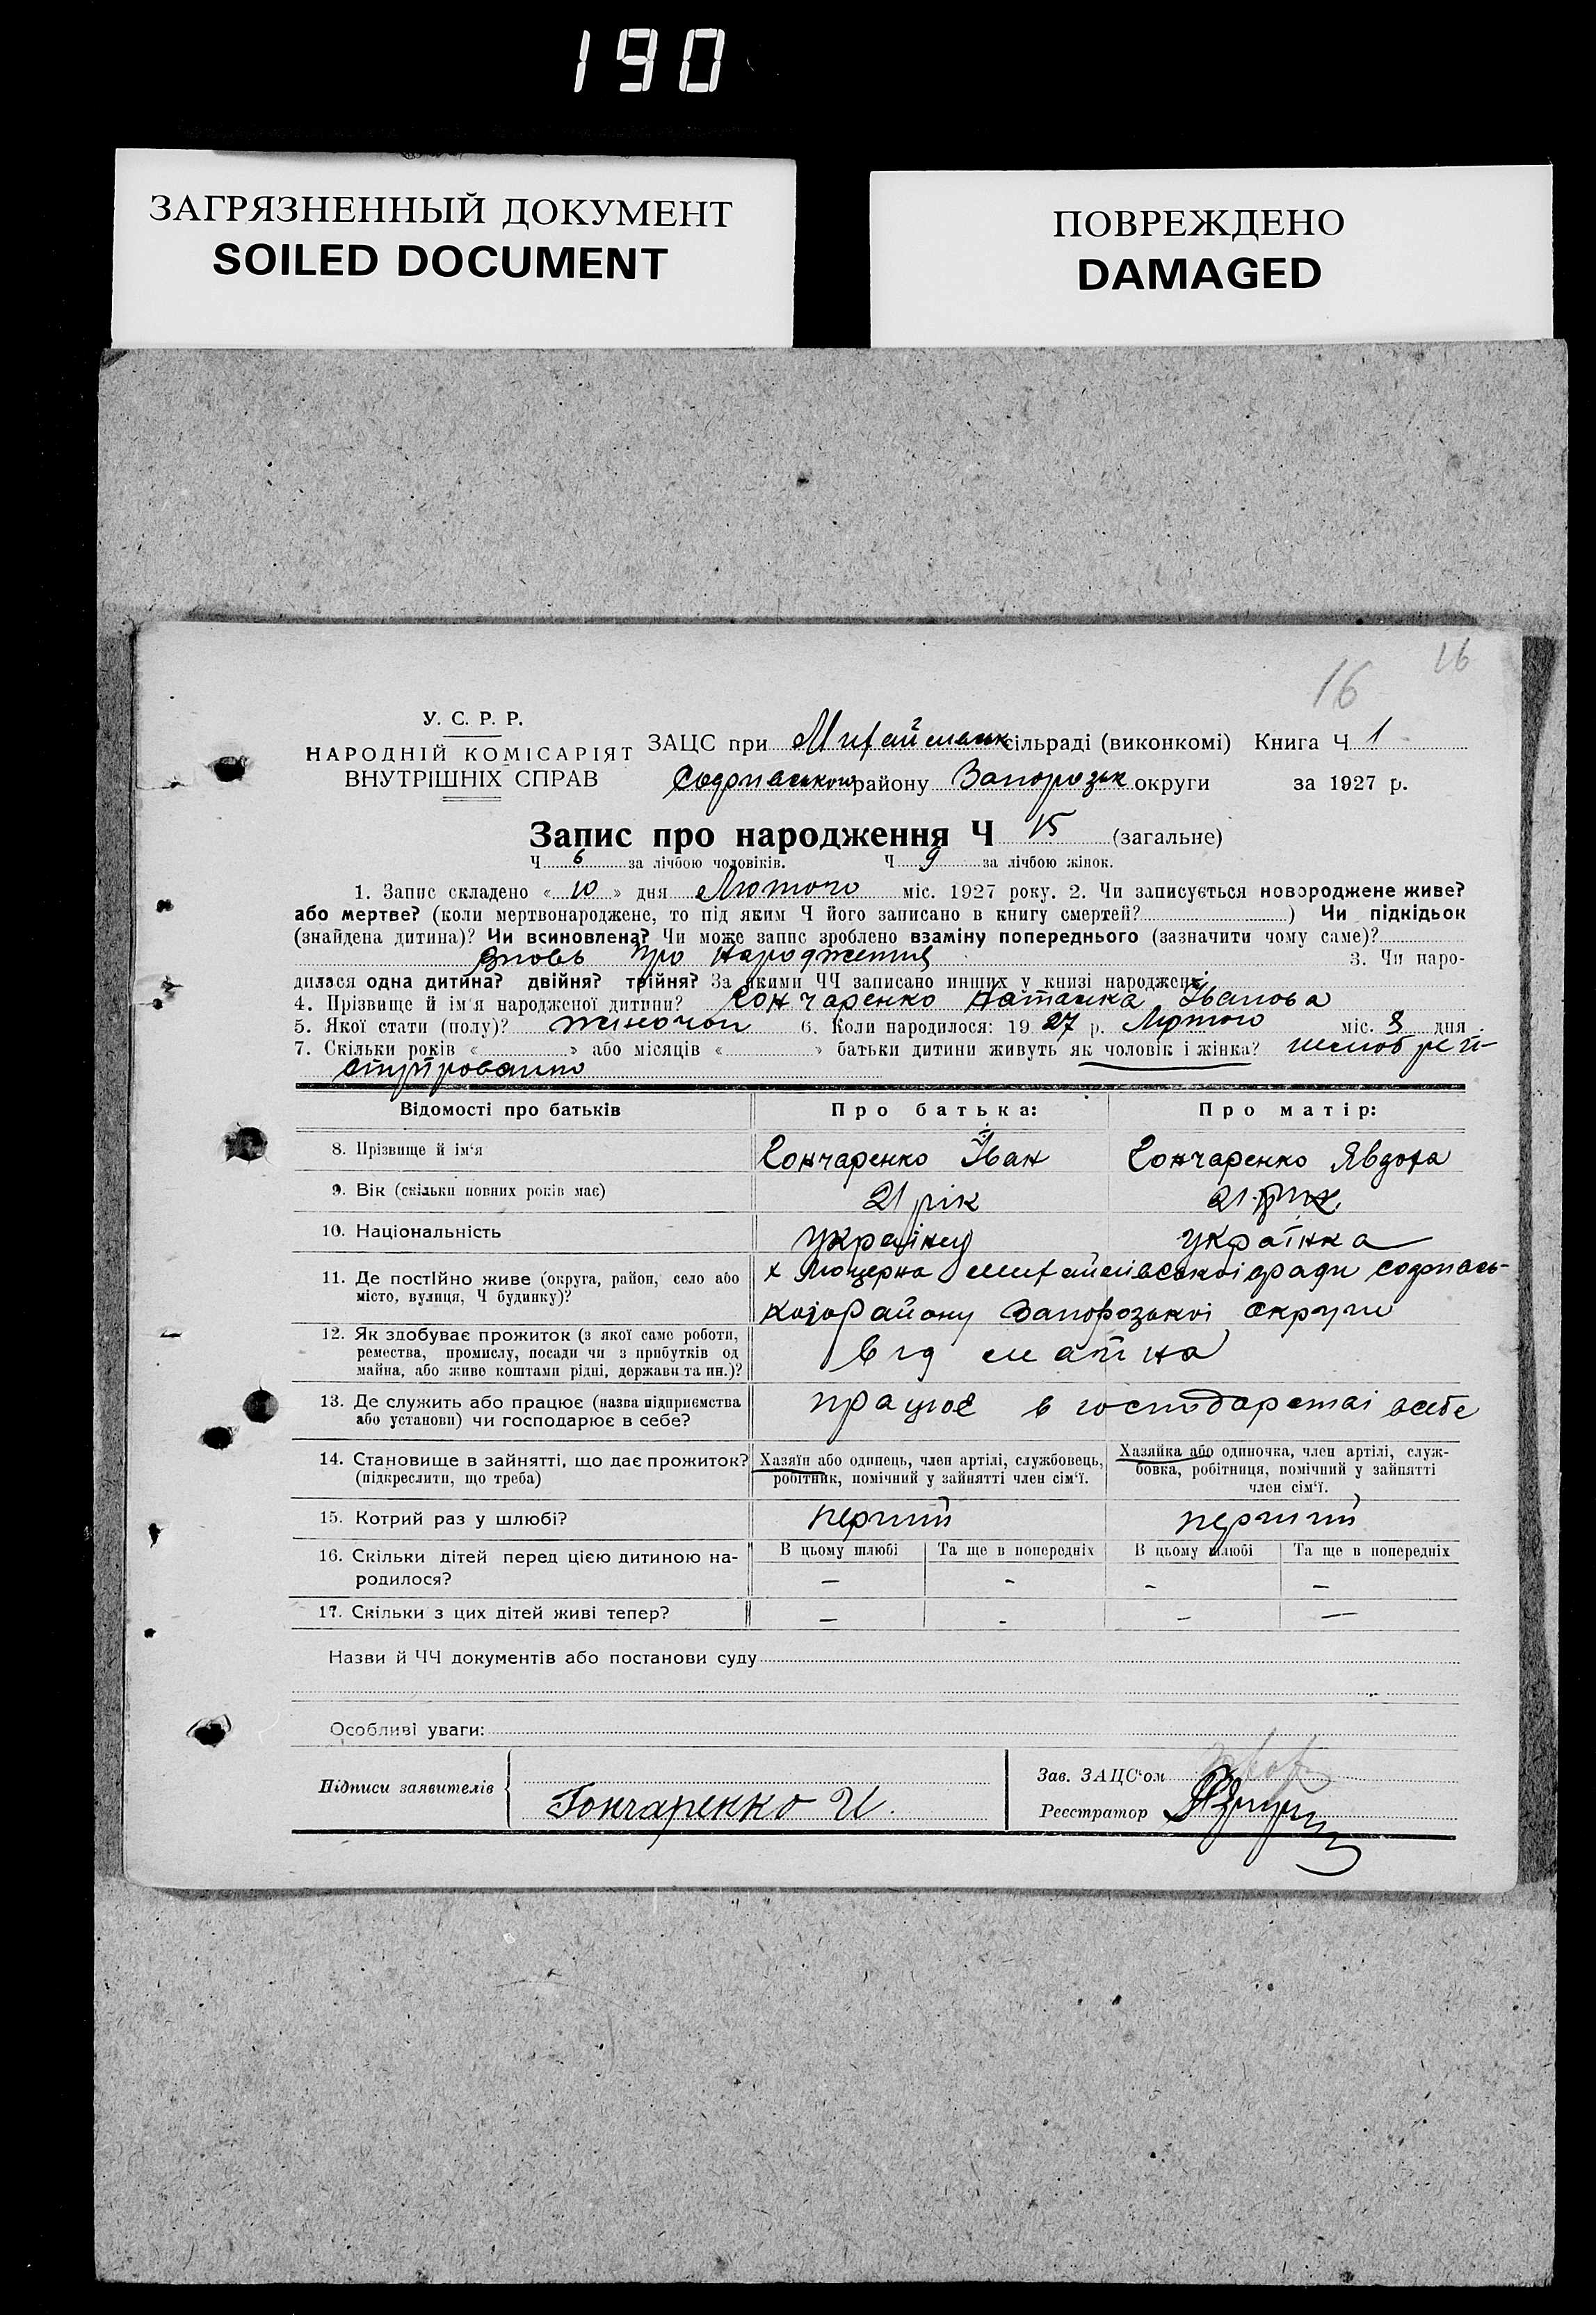 190
ЗАГРЯЗНЕННЫЙ ДОКУМЕНТ
SOILED DOCUMENT
ПОВРЕЖДЕНО
DAMAGED
16
16
У. С. Р. Р.
НАРОДНІЙ КОМІСАРІЯТ
ВНУТРІШНІХ СПРАВ
ЗАЦС при сільраді (виконкомі) Книга Ч 1
району Запорозьк округи за 1927 р.
Запис про народження Ч 15 (загальне)
Ч 6 за лічбою чоловіків. Ч 9 за лічбою жінок.
1. Запис складено « 10 » дня Лютого міс. 1927 року. 2. Чи записується новороджене живе?
або мертве? (коли мертвонароджене, то під яким Ч його записано в книгу смертей? ) Чи підкідьок
(знайдена дитина)? Чи всиновлена? Чи може запис зроблено взаміну попереднього (зазначити чому саме)?
Вновь про народження 3. Чи наро-
дилася одна дитина? двійня? трійня? За якими ЧЧ записано инших у книзі народжень
4. Прізвище й ім'я народженої дитини? Гончаренко Наталка Іванова
5. Якої стати (полу)? 6. Коли народилося: 19 27 р. Лютого міс. 8 дня
7. Скільки років « » або місяців « » батьки дитини живуть як чоловік і жінка?
Відомості про батьків Про батька: Про матір:
8. Прізвище й ім'я Гончаренко Іван Гончаренко Явдоха
9. Вік (скільки повних років має) 21 рік 21
10. Національність українец українка
11. Де постійно живе (округа, район, село або
місто, вулиця, Ч будинку)? х Люцерна
району Запорозької округи
12. Як здобуває прожиток (з якої саме роботи,
ремества, промислу, посади чи з прибутків од
майна, або живе коштами рідні, держави та ин.)? від
13. Де служить або працює (назва підприємства
або установи) чи господарює в себе? працює в всебе
14. Становище в зайнятті, що дає прожиток?
(підкреслити, що треба)
Хазяїн або одинець, член артілі, службовець,
робітник, помічний у зайнятті член сім'ї.
Хазяйка або одиночка, член артілі, служ-
бовка, робітниця, помічний у зайнятті
член сім'ї.
15. Котрий раз у шлюбі? перший перший
16. Скільки дітей перед цією дитиною на-
родилося?
В цьому шлюбі Та ще в попередніх В цьому шлюбі Та ще в попередніх
— - - —
17. Скільки з цих дітей живі тепер? — - — —
Назви й ЧЧ документів або постанови суду
Особливі уваги:
Підписи заявителів Гончаренко И.
Зав. ЗАЦС'ом
Реєстратор